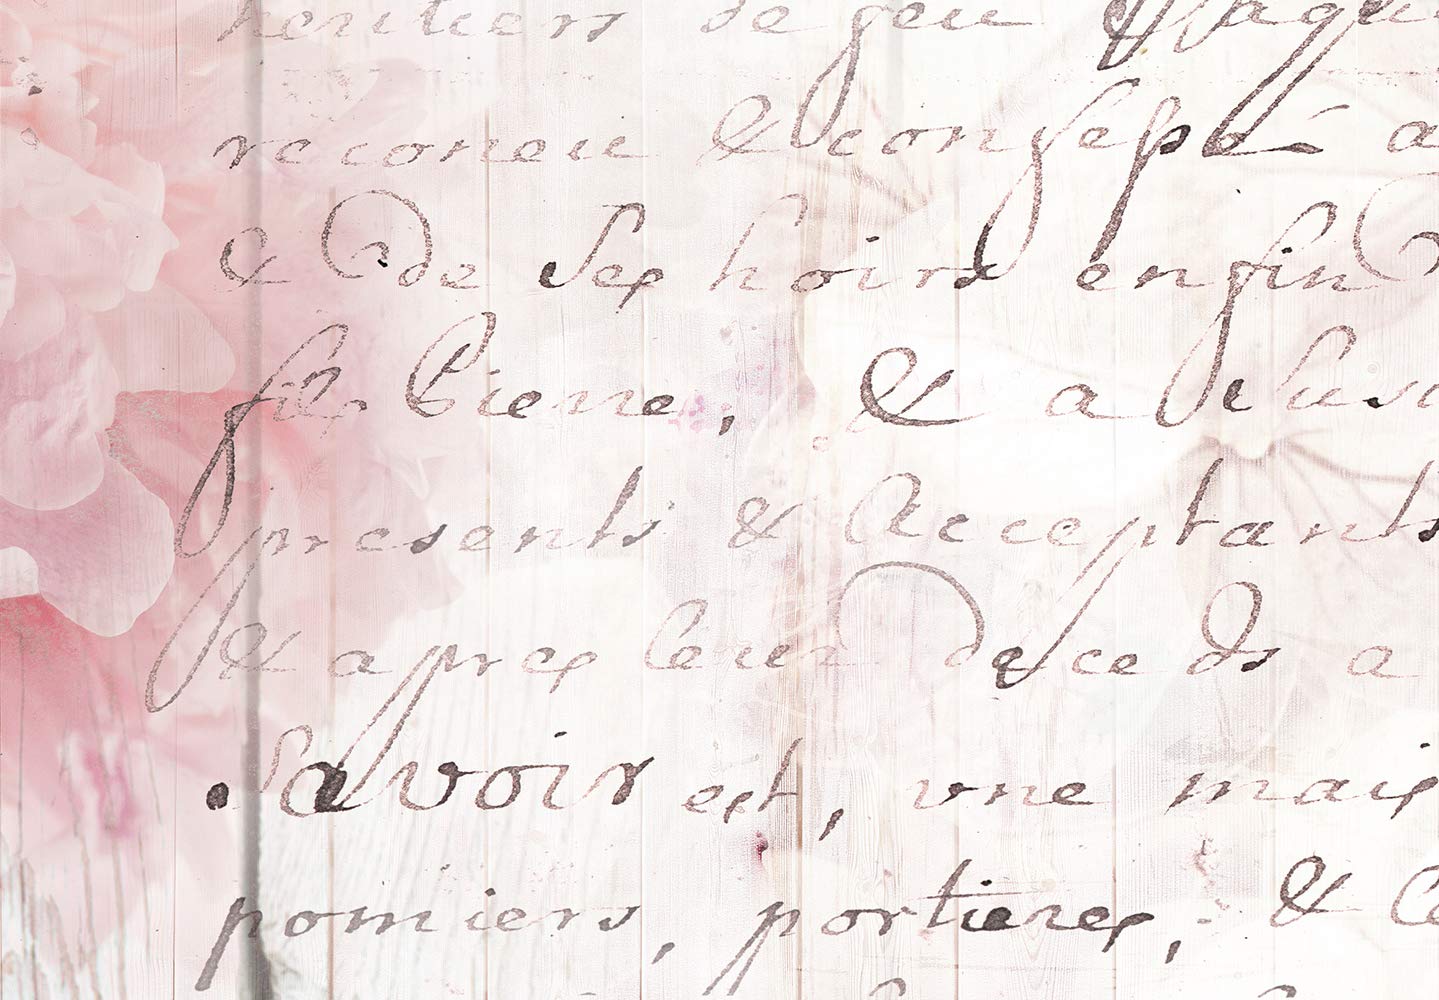 heritiers de feu Jaque
reconeu & confessé a
& de Ses hoirs enfin
fils Biene, & a Ausi
presents & Acceptants
& apres leur deceds a
Savoir est, une mais
pomiers, portieres, &